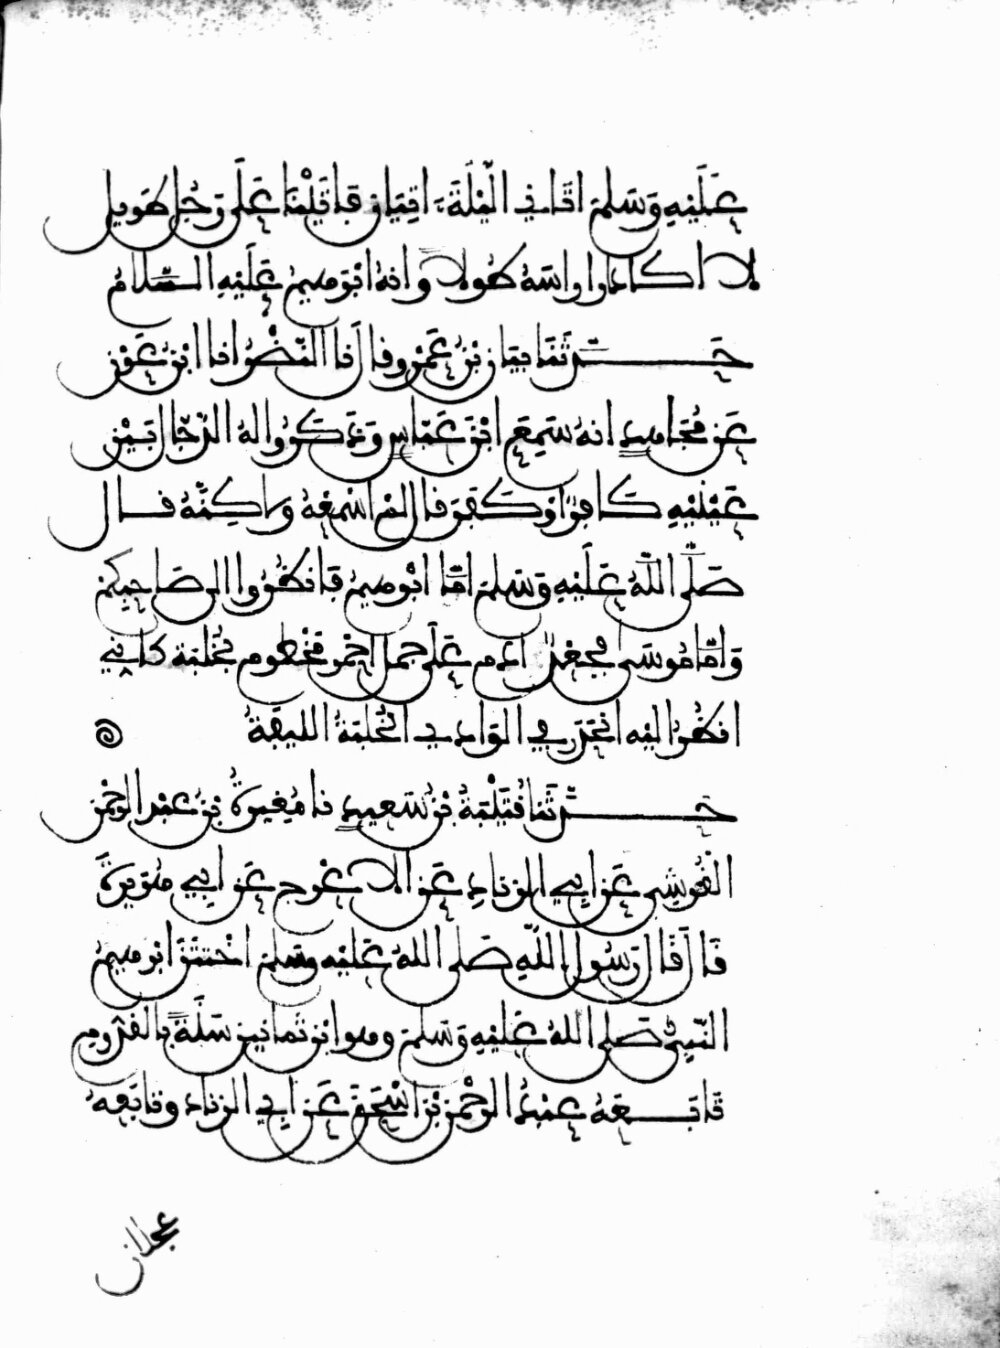 عَلَيْهِ وَسَلم اتَاني الليْلَةَ اتِيَانِ فاتَيْنَا عَلَى رَجُل طَوِيل
لا اكاد ارا راسَهُ طُولا وانهُ ابْرَهيمُ عَلَيْهِ السَّلامُ
حَدَّثَنَا بيَان بْنُ عَمْرٍو قال أَنَا النَّضْرُ انا ابْنُ عَوْنٍ
عَن مُجَاهِد انهُ سَمِعَ ابْنَ عَبَّاسٍ وَذكَرُوا لهُ الدَّجَّال بَيْنَ
عَيْنَيْهِ كَافِرٌ اوْ كَفَرَ قال لَمْ اسْمَعْهُ ولكِنَّهُ قال
صَلَّى اللَّهُ عَلَيْهِ وَسَلم امَّا ابْرَهيمُ فانظُرُوا الى صَاحِبِكُمْ
وَامَّا مُوسَى فَجَعْدٌ ادم عَلَى جمل احْمَرَ مَخْطوم بخُلبَة كاني
انظُرُ اليْهِ انحَدَرَ في الوَادِي الخُلبَةُ الليفَةُ
حَدَّثَنَا قُتَيْبَةُ بْنُ سَعِيد نا مُغِيرَةُ بْنُ عَبْد الرحْمَن
القُرَشِي عَنْ ابِي الزنَادِ عَنِ الاعْرَجِ عَنْ ابِي هُرَيْرَةَ
قَالَ قَالَ رَسُولُ اللَّهِ صَلى اللهُ عَلَيْهِ وسَلم اخْتَتَنَ ابْرهيمُ
النَّبِيُّ صَلى اللهُ عَلَيْهِ وَسَلم وهوابْن ثمانين سَنَةً بالقَدُّوم
تَابَعَهُ عَبْدُ الرحْمَن بْنُ اسْحَقَ عَنْ ابِي الزناد وتابَعهُ
عجلان